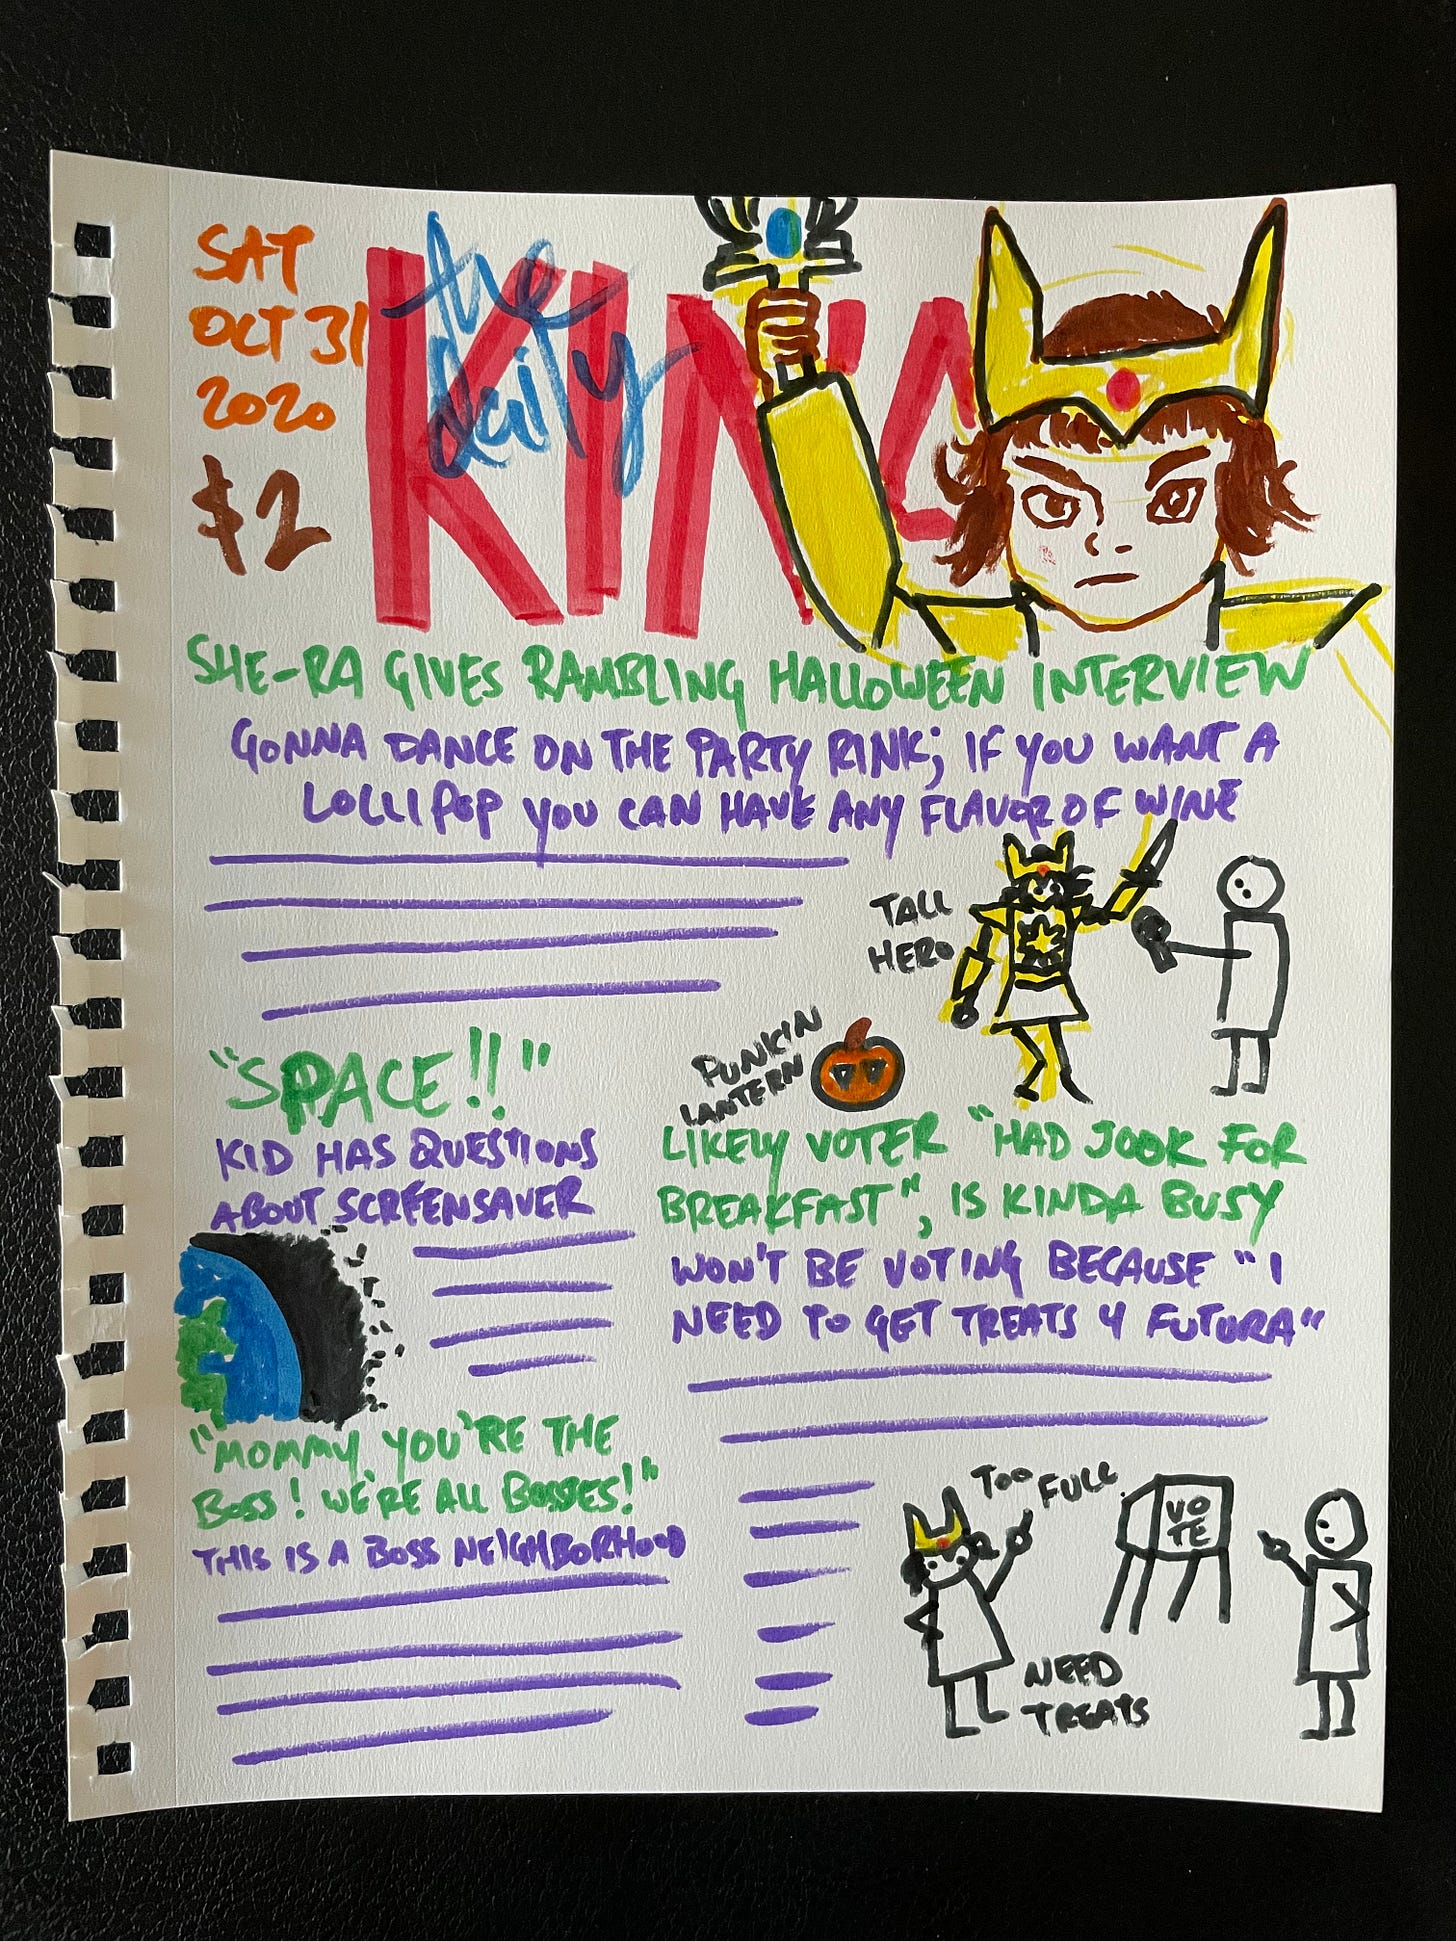 SAT
OCT 31
2020
$2
the
daily
KINA
SHE-RA GIVES RAMBLING HALLOWEEN INTERVIEW
GONNA DANCE ON THE PARTY RINK; IF YOU WANT A
LOLLIPOP YOU CAN HAVE ANY FLAVOR OF WINE
TALL
HERO
PUNKIN
LANTERN
"SPACE!!"
KID HAS QUESTIONS
ABOUT SCREENSAVER
LIKELY VOTER "HAD JOOK FOR
BREAKFAST", IS KINDA BUSY
WON'T BE VOTING BECAUSE "I
NEED TO GET TREATS 4 FUTURA"
"MOMMY, YOU'RE THE
BOSS! WE'RE ALL BOSSES!"
THIS IS A BOSS NEIGHBORHOOD
TOO FULL
VO
TE
NEED
TREATS